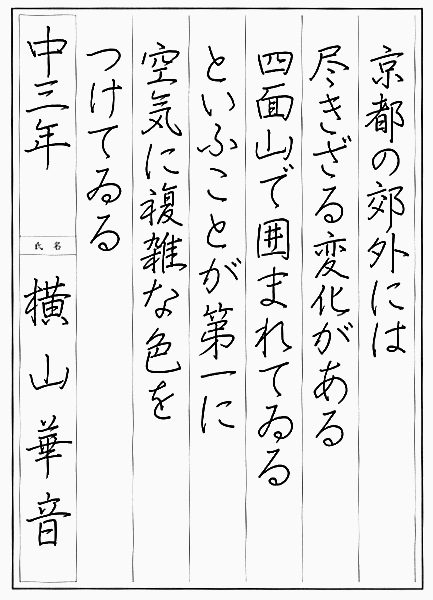 京都の郊外には
尽きざる変化がある
四面山で囲まれてゐる
といふことが第一に
空気に複雑な色を
つけてゐる
中三年
氏名
横山華音